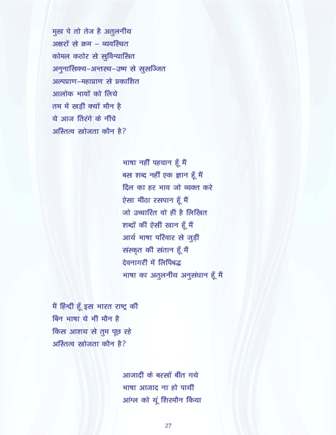 मुख पे तो तेज है अतुलनीय
अक्षरों से क्रम – व्यवस्थित
कोमल कठोर से सुविन्यासित
अनुनासिक्य-अन्तस्थ-उष्म से सुसज्जित
अल्पप्राण-महाप्राण से प्रकाशित
आलोक भावों को लिये
तम में खड़ी क्यों मौन है
ये आज तिरंगे के नीचे
अस्तित्व खोजता कौन है?
भाषा नहीं पहचान हूँ मैं
बस शब्द नहीं एक ज्ञान हूँ मैं
दिल का हर भाव जो व्यक्त करे
ऐसा मीठा रसपान हूँ मैं
जो उच्चारित वो ही है लिखित
शब्दों की ऐसी खान हूँ मैं
आर्य भाषा परिवार से जुड़ी
संस्कृत की संतान हूँ मैं
देवनागरी में लिपिबद्ध
भाषा का अतुलनीय अनुसंधान हूँ मैं
मैं हिन्दी हूँ इस भारत राष्ट्र की
बिन भाषा ये भी मौन है
किस आशय से तुम पूछ रहे
अस्तित्व खोजता कौन है?
आजादी के बरसों बीत गये
भाषा आजाद ना हो पायी
आंग्ल को यूं शिरमौन किया
27